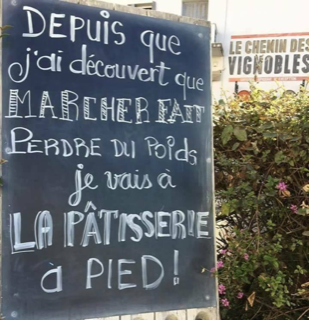 DEPUIS que
j'ai découvert que
MARCHER FAIT
PERDRE DU POIDS
je vais à
LA PÂTISSERIE
à PIED!
LE CHEMIN DES
VIGNOBLES